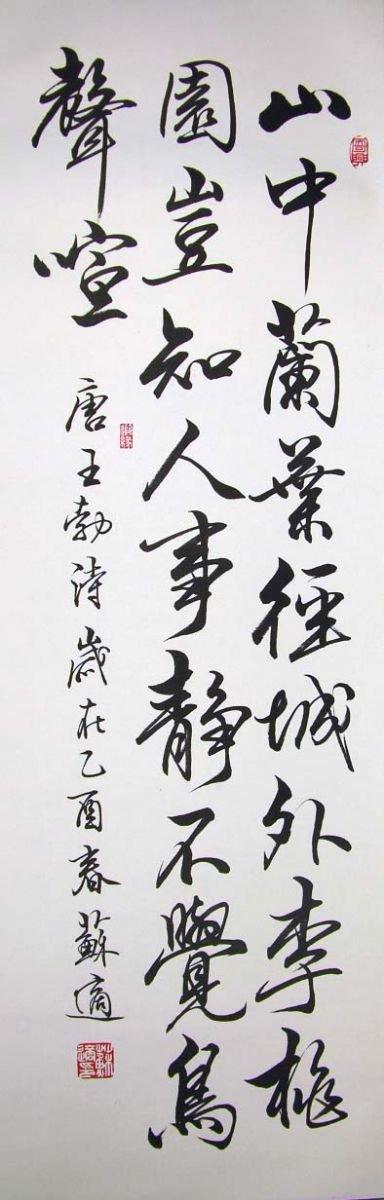 山中蘭葉徑城外李桃
園豈知人事靜不覺鳥
聲喧
唐王勃詩歲在乙酉春蘇適